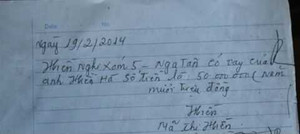 Ngày 19/2/2014
Hiền nghi xóm 5 - Nga Tân có vay của
anh Hiền Hà Số tiền là 50 000 000 ( năm
mươi triệu đồng
Hiền
Mã Thị Hiền